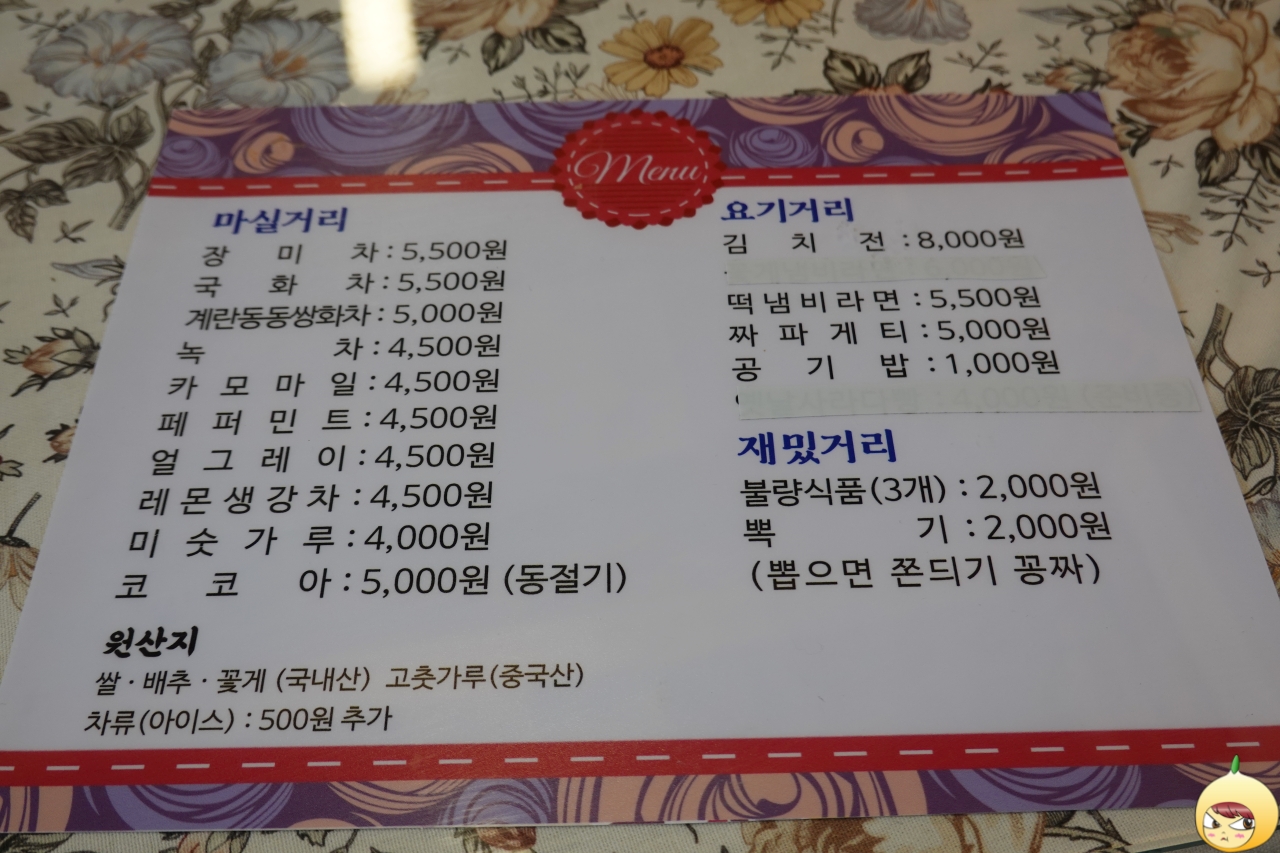 Menu
마실거리
장 미 차 : 5,500원
국 화 차 : 5,500원
계란동동쌍화차 : 5,000원
녹 차 : 4,500원
카 모 마 일 : 4,500원
페 퍼 민 트 : 4,500원
얼 그 레 이 : 4,500원
레 몬 생 강 차 : 4,500원
미 숫 가 루 : 4,000원
코 코 아 : 5,000원 (동절기)
원산지
쌀 · 배추 · 꽃게 (국내산) 고춧가루(중국산)
차류(아이스) : 500원 추가
요기거리
김 치 전 : 8,000원
떡 냄 비 라 면 : 5,500원
짜 파 게 티 : 5,000원
공 기 밥 : 1,000원
재밌거리
불량식품(3개) : 2,000원
뽁 기 : 2,000원
(뽑으면 쫀듸기 꽁짜)